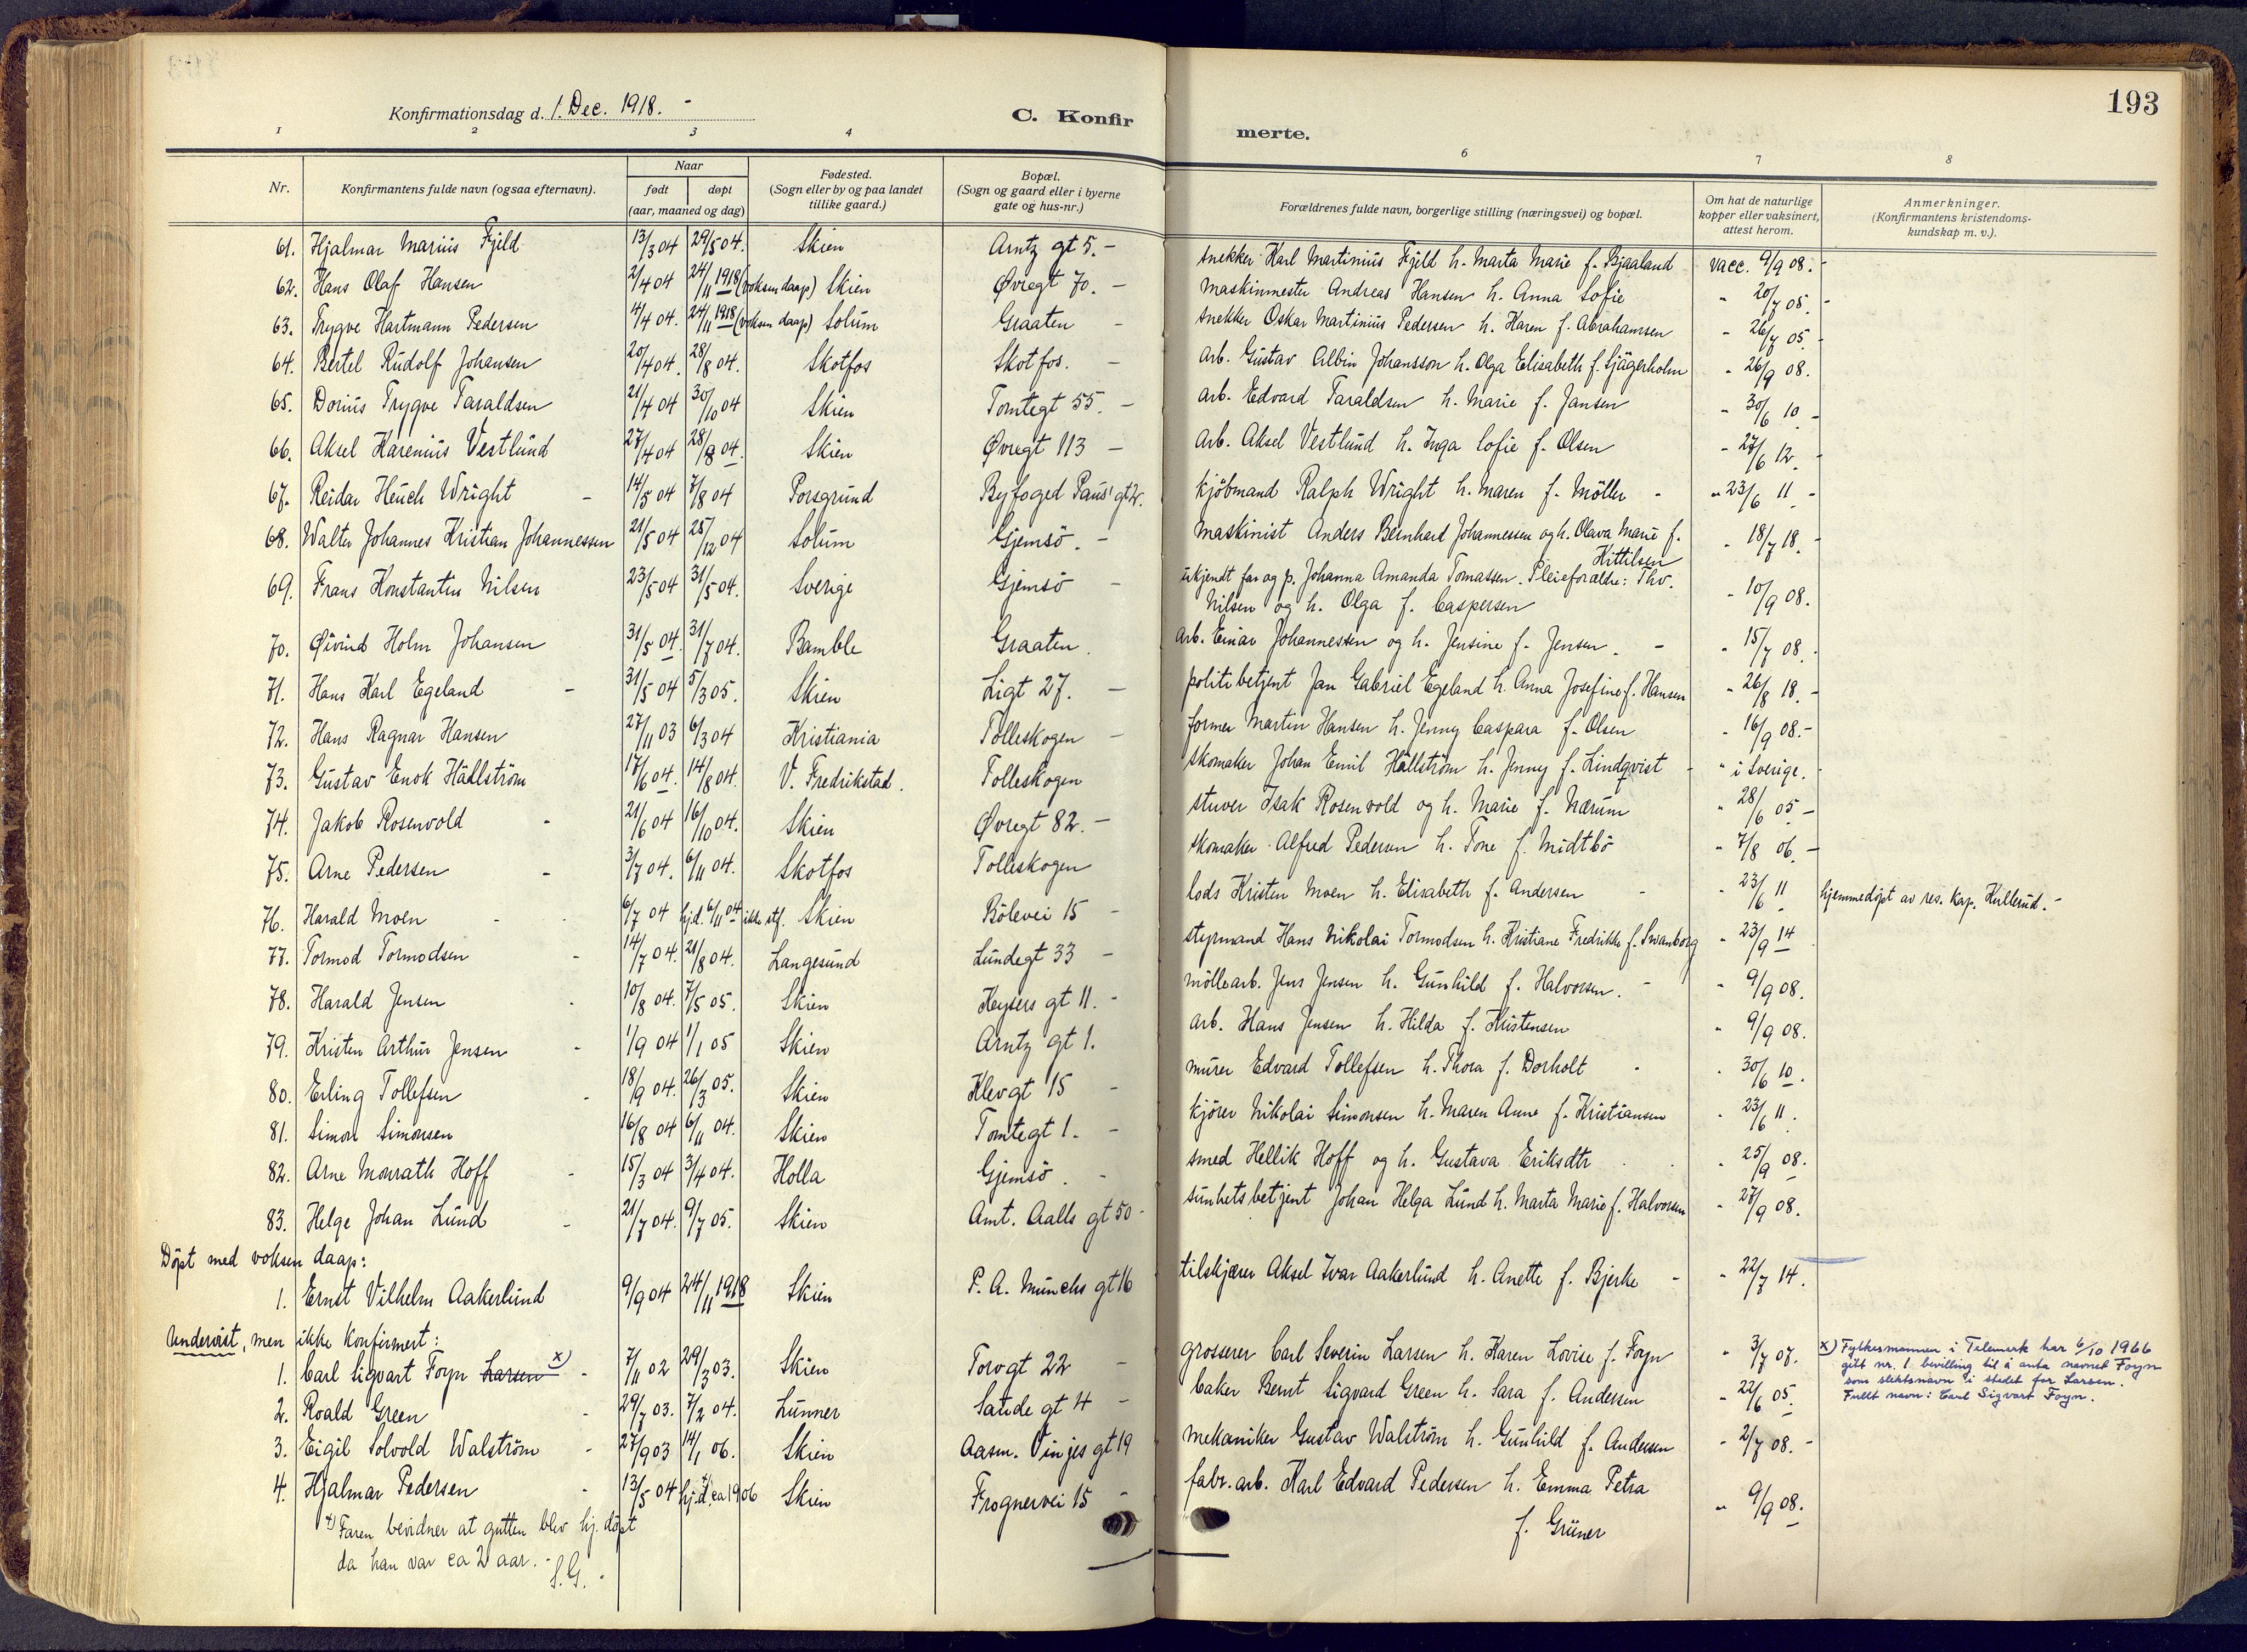 193
Konfirmationsdag d. 1. Dec. 1918. -
C. Konfirmerte.
1 2 3 4 6 7 8
Nr.
Konfirmantens fulde navn (ogsaa efternavn).
Naar
født døpt
(aar, maaned og dag)
Fødested.
(Sogn eller by og paa landet
tillike gaard.)
Bopæl.
(Sogn og gaard eller i byerne
gate og hus-nr.)
Forældrenes fulde navn, borgerlige stilling (næringsvei) og bopæl.
Om hat de naturlige
kopper eller vaksinert,
attest herom.
Anmerkninger.
(Konfirmantens kristendoms-
kundskap m. v.).
61. Hjalmar Marius Fjeld 13/3 04 29/5 04. Skien Arntz gt 5. - snekker Karl Martinius Fjeld h. Marta Marie f. Bjaaland vacc. 9/9 08. -
62. Hans Olaf Hansen 2/4 04 24/11 1918 (voksen daap) Skien Øvregt 70. - maskinmester Andreas Hansen h. Anna Sofie " 20/7 05. -
63. Trygve Hartmann Pedersen 14/4 04. 24/11 1918 (voksen daap) Solum Graaten - snekker Oskar Martinius Pedersen h. Karen f. Abrahamsen - 26/7 05. -
64. Bertel Rudolf Johansen 20/4 04. 28/8 04. Skotfos Skotfos. - arb. Gustav Albin Johansson h. Olga Elisabeth f. Sjägerholm " 26/9 08.
65. Dorius Trygve Taraldsen 21/4 04 30/10 04 Skien Tomtegt 55. - arb. Edvard Taraldsen h. Marie f. Jansen - 30/6 10. -
66. Aksel Harenius Vestlund 27/4 04 28/8 04. Skien Øvregt 113 - arb. Aksel Vestlund h. Inga Sofie f. Olsen - 27/6 12. -
67. Reidar Heuch Wright - 14/5 04 7/8 04 Porsgrund Byfoged Paus' gt 2. kjöbmand Ralph Wright h. Maren f. Möller - " 23/6 11 -
68. Walter Johannes Kristian Johannessen 21/5 04 25/12 04 Solum Gjemsö. - maskinist Anders Bernhard Johannessen og h. Olava Marie f. Kittilsen " 18/7 18. -
69. Frans Konstantin Nilsen 23/5 04 31/5 04. Sverige Gjemsö - ukjendt far og p. Johanna Amanda Tomassen. Pleieforældre: Thv.
Nilsen og h. Olga f. Caspersen - 10/9 08.
70. Øivind Holm Johansen 31/5 04. 31/7 04. Bamble Graaten. arb. Einar Johannessen og h. Jensine f. Jensen. - " 15/7 08. -
71. Hans Karl Egeland - 31/5 04 5/3 05. Skien Ligt 27. - politibetjent Jan Gabriel Egeland h. Anna Josefine f. Hansen " 26/8 18. -
72. Hans Ragnar Hansen 27/11 03 6/3 04 Kristiania Tolleskogen - former Martin Hansen h. Jenny Caspara f. Olsen " 16/9 08. -
73. Gustav Enok Hällström 17/6 04. 14/8 04. V. Fredrikstad. Tolleskogen skomaker Johan Emil Hällström h. Jenny f. Lindqvist - " i Sverige.
74. Jakob Rosenvold - 21/6 04 16/10 04. Skien Øvregt 82. - stuver Isak Rosenvold og h. Marie f. Nærum " 28/6 05 -
75. Arne Pedersen - 3/7 04. 6/11 04. Skotfos Tolleskogen skomaker Alfred Pedersen h. Tone f. Midtbö " 7/8 06. -
76. Harald Moen - 6/7 04 hj.d. 6/11 04 ikke stf. Skien Bölevei 15 - lods Kristen Moen h. Elisabeth f. Andersen - " 23/6 11 hjemmedöpt av res. kap. Hullerud. -
77. Tormod Tormodsen - 14/7 04. 21/8 04. Langesund Lundegt 33 - styrmand Hans Nikolai Tormodsen h. Kristiane Fredrikke f. Swanborg " 23/9 14
78. Harald Jensen 10/8 04. 7/5 05. Skien Keysers gt 11. - möllearb. Jens Jensen h. Gunhild f. Halvorsen. - " 9/9 08.
79. Kristen Arthur Jensen - 1/9 04 1/1 05 Skien Arntz gt 1. arb. Hans Jensen h. Hilda f. Kristensen " 9/9 08.
80. Erling Tollefsen - 18/9 04. 26/3 05. Skien Klevgt 15 - murer Edvard Tollefsen h. Thora f. Dorholt - " 30/6 10.
81. Simon Simonsen 16/8 04 6/11 04. Skien Tomtegt 1. - kjörer Nikolai Simonsen h. Maren Anne f. Kristiansen " 23/6 11.
82. Arne Monrath Hoff - 15/3 04 3/4 04. Holla Gjemsö. - smed Hellik Hoff og h. Gustava Eriksdtr " 25/9 08.
83. Helge Johan Lund - 21/7 04. 9/7 05. Skien Amt. Aalls gt 50 - sunhetsbetjent Johan Helga Lund h. Marta Marie f. Halvorsen " 27/9 08.
Döpt med voksen daap:
1. Ernst Vilhelm Aakerlund 9/9 04 24/11 1918 Skien P. A. Munchs gt 16 tilskjærer Aksel Ivar Aakerlund h. Anette f. Bjerke - " 22/7 14.
Undervist, men ikke konfirmert:
1. Carl Sigvart Foyn Larsen x) - 7/11 02 29/3 03. Skien Torvgt 22 - grosserer Carl Severin Larsen h. Karen Lovise f. Foyn " 3/7 07. x) Fylkesmannen i Telemark har 6/10 1966
gitt nr. 1 bevilling til å anta navnet Foyn
som slektsnavn i stedet for Larsen.
Fullt navn: Carl Sigvart Foyn.
2. Roald Green - 29/7 03. 7/2 04. Lunner Satide gt 4 - baker Bernt Sigvard Green h. Sara f. Andersen - 22/6 05.
3. Eigil Solvold Walström - 27/9 03 14/1 06. Skien Aasm. Vinjes gt 19 mekaniker Gustav Walström h. Gunhild f. Andersen - 2/7 08. -
4. Hjalmar Pedersen - 13/5 04 hj.d. +) ca 1906 Skien Frognervei 15 - fabr. arb. Karl Edvard Pedersen h. Emma Petra
f. Grüner " 9/9 08.
+) Faren bevidner at gutten blev hj. döpt
da han var ca 2 aar. -
S.G. -